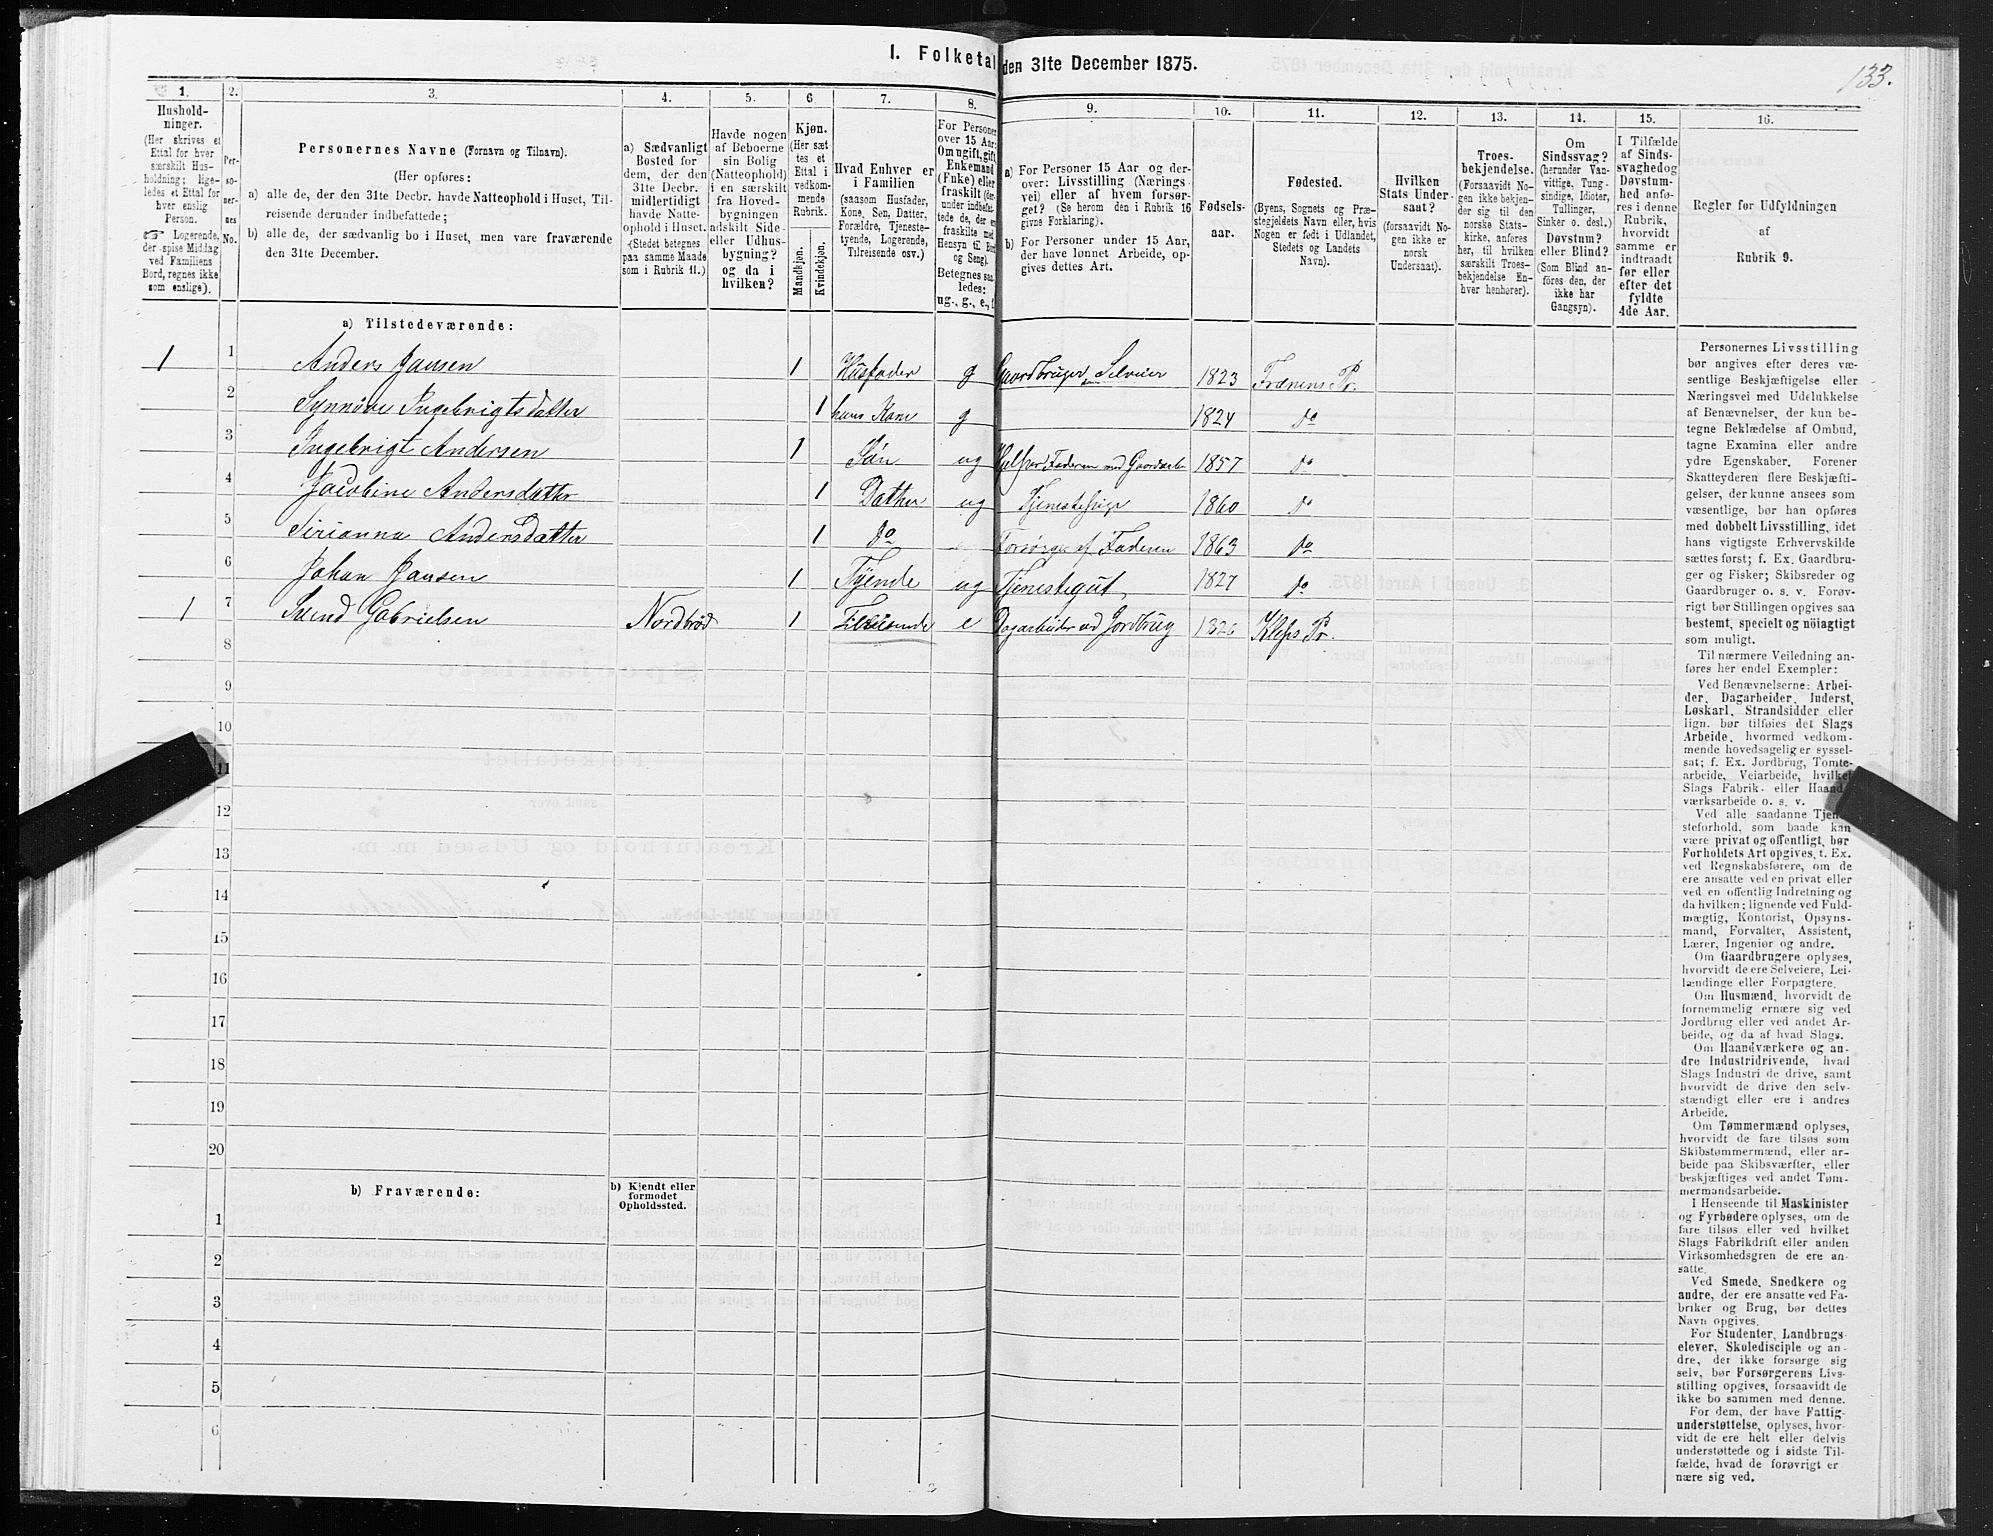 I. Folketal den 31te December 1875.
133.
1.
Hushold-
ninger.
(Her skrives et
Ettal for hver
særskilt Hus-
holdning; lige-
ledes et Ettal for
hver enslig
Person.
Logerende,
der spise Middag
ved Familiens
Bord, regnes ikke
som enslige).
2.
Per-
so-
ner-
nes
No.
3.
Personernes Navne (Fornavn og Tilnavn).
(Her opføres:
a) alle de, der den 31te Decbr. havde Natteophold i Huset, Til-
reisende derunder indbefattede;
b) alle de, der sædvanlig bo i Huset, men vare fraværende
den 31te December.
4.
a) Sædvanligt
Bosted for
dem, der den
31te Decbr.
midlertidigt
havde Natte-
ophold i Huset.
(Stedet betegnes
paa samme Maade
som i Rubrik 11.)
5.
Havde nogen
af Beboerne
sin Bolig
(Natteophold)
i en særskilt
fra Hoved-
bygningen
adskilt Side-
eller Udhus-
bygning?
og da i
hvilken?
6
Kjøn.
(Her sæt
tes et
Ettal i
vedkom-
mende
Rubrik.
Mandkjøn.
Kvindekjøn.
7.
Hvad Enhver er
i Familien
(saasom Husfader,
Kone, Søn, Datter,
Forældre, Tjeneste-
tyende, Logerende,
Tilreisende osv.)
8.
For Personer
over 15 Aar:
Om ugift, gift,
Enkemand
(Enke) eller
fraskilt (der-
under indbefat-
tede de, der ere
fraskilte med
Hensyn til Bord
og Seng).
Betegnes saa-
ledes:
ug., g., e., f.
9.
a) For Personer 15 Aar og der-
over: Livsstilling (Nærings-
vei) eller af hvem forsør-
get? (Se herom den i Rubrik 16
givne Forklaring).
b) For Personer under 15 Aar,
der have lønnet Arbeide, op-
gives dettes Art.
10.
Fødsels-
aar.
11.
Fødested.
(Byens, Sognets og Præ-
stegjeldets Navn eller, hvis
Nogen er født i Udlandet,
Stedets og Landets
Navn).
12.
Hvilken
Stats Under-
saat?
(forsaavidt No-
gen ikke er
norsk
Undersaat).
13.
Troes-
bekjendelse.
(Forsaavidt No-
gen ikke bekjen-
der sig til den
norske Stats-
kirke, anføres
her, til hvilken
særskilt Troes-
bekjendelse En-
hver henhører).
14.
Om
Sindssvag?
(herunder Van-
vittige, Tung-
sindige, Idioter,
Tullinger,
Sinker o. desl.)
Døvstum?
eller Blind?
(Som Blind an-
føres den, der
ikke har
Gangsyn).
15.
I Tilfælde
af Sinds-
svaghed og
Døvstum-
hed anfø-
res i denne
Rubrik,
hvorvidt
samme er
indtraadt
før eller
efter det
fyldte
4de Aar.
16.
Regler for Udfyldningen
af
Rubrik 9.
a) Tilstedeværende:
1 1 Anders Jansen 1 Husfader g Gaardbruger Selveier 1823 Frænens Pr.
2 Synnøve Ingebrigtsdatter 1 hans Kone g 1824 do
3 Ingebrigt Andersen 1 Søn ug Hjelper Faderen med Gaardsarb. 1857 do
4 Jacobine Andersdatter 1 Datter ug Tjenestepige 1860 do
5 Sirianna Andersdatter 1 do Forsørges af Faderen 1863 do
6 Johan Jansen 1 Tyende ug Tjenestegut 1827 do
1 7 Svend Gabrielsen Nordbrød 1 e Dagarbeider ved Jordbrug 1826 Kleps Pr.
8
9
10
11
12
13
14
15
16
17
18
19
20
b) Fraværende:
b) Kjendt eller
formodet
Opholdssted.
1
2
3
4
5
6
Personernes Livsstilling
bør angives efter deres væ-
sentlige Beskjæftigelse eller
Næringsvei med Udelukkelse
af Benævnelser, der kun be-
tegne Beklædelse af Ombud,
tagne Examina eller andre
ydre Egenskaber. Forener
Skatteyderen flere Beskjæfti-
gelser, der kunne ansees som
væsentlige, bør han opføres
med dobbelt Livsstilling, idet
hans vigtigste Erhvervskilde
sættes først; f. Ex. Gaardbru-
ger og Fisker; Skibsreder og
Gaardbruger o. s. v. Forøv-
rigt bør Stillingen opgives saa
bestemt, specielt og nöiagtigt
som muligt.
Til nærmere Veiledning an-
føres her endel Exempler:
Ved Benævnelserne: Arbei-
der, Dagarbeider, Inderst,
Løskarl, Strandsidder eller
lign. bør tilføies det Slags
Arbeide, hvormed vedkom-
mende hovedsagelig er syssel-
sat; f. Ex. Jordbrug, Tomte-
arbeide, Veiarbeide, hvilket
Slags Fabrik- eller Haand-
værksarbeide o. s. v.
Ved alle saadanne Tjene-
steforhold, som baade kan
være privat og offentligt, bør
Forholdets Art opgives, t. Ex.
ved Regnskabsførere, om de
ere ansatte ved en privat eller
ved en offentlig Indretning og
da hvilken; lignende ved Fuld-
mægtig, Kontorist, Opsyns-
mand, Forvalter, Assistent,
Lærer, Ingeniør og andre.
Om Gaardbrugere oplyses,
hvorvidt de ere Selveiere, Lei-
lændinge eller Forpagtere.
Om Husmænd, hvorvidt de
fornemmelig ernære sig ved
Jordbrug eller ved andet Ar-
beide, og da af hvad Slags.
Om Haandværkere og an-
dre Industridrivende, hvad
Slags Industri de drive, samt
hvorvidt de drive den selv-
stændigt eller ere i andres
Arbeide.
Om Tømmermænd oplyses,
hvorvidt de fare tilsøs som
Skibstømmermænd, eller ar-
beide paa Skibsværfter, eller
beskjæftiges ved andet Tøm-
mermandsarbeide.
I Henseende til Maskinister
og Fyrbødere oplyses, om de
fare tilsøs eller ved hvilket
Slags Fabrikdrift eller anden
Virksomhedsgren de ere an-
satte.
Ved Smede, Snedkere og
andre, der ere ansatte ved Fa-
briker og Brug, bør dettes
Navn opgives.
For Studenter, Landbrugs-
elever, Skoledisciple og an-
dre, der ikke forsørge sig
selv, bør Forsørgerens Livs-
stilling opgives, forsaavidt de
ikke bo sammen med denne.
For dem, der have Fattig-
understøttelse, oplyses, hvor-
vidt de ere helt eller delvis
understøttede og i sidste Til-
fælde, hvad de forøvrigt er-
nære sig ved.